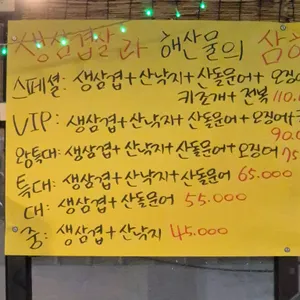 생삼겹살과 해산물의 삼
스페셜: 생삼겹+산낙지+산돌문어+오징
키조개+전복 110.
VIP: 생삼겹+산낙지+산돌문어+오징어+
90.0
왕특대: 생삼겹+산낙지+산돌문어+오징어 75
특대: 생삼겹+산낙지+산돌문어 65.000
대: 생삼겹+산돌문어 55.000
중: 생삼겹+산낙지 45.000